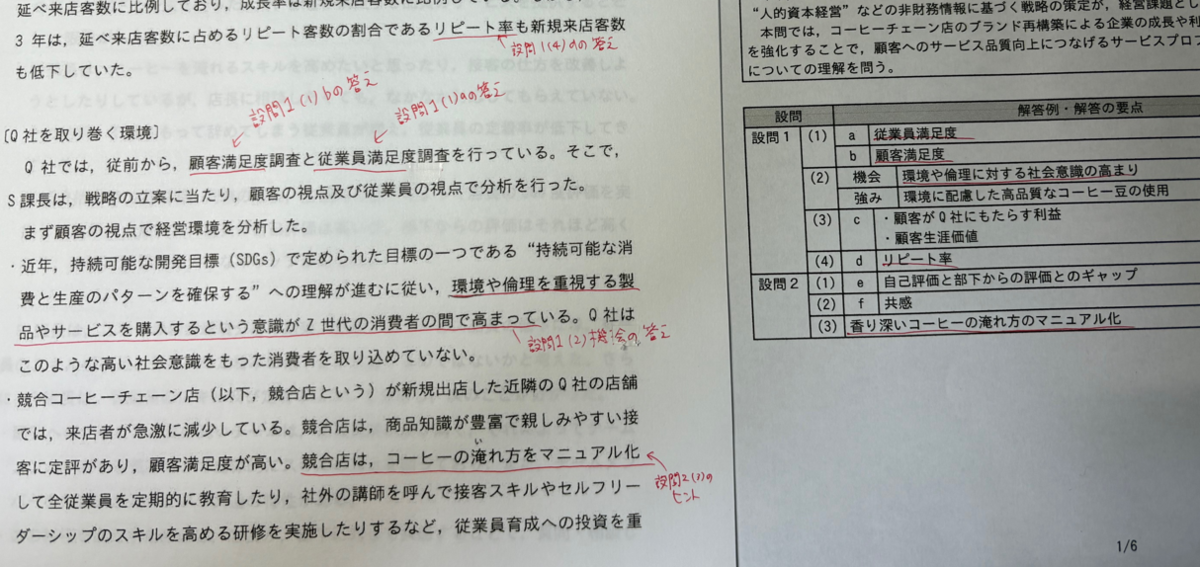 延べ来店客数に比例しており，成長率は新規来店客数に比例している。
3 年は，延べ来店客数に占めるリピート客数の割合であるリピート率も新規来店客数
設問1(4)dの答え
も低下していた。
設問1(1)bの答え
設問1(1)aの答え
〔Q 社を取り巻く環境〕
Q 社では，従前から，顧客満足度調査と従業員満足度調査を行っている。そこで，
S 課長は，戦略の立案に当たり，顧客の視点及び従業員の視点で分析を行った。
まず顧客の視点で経営環境を分析した。
・近年，持続可能な開発目標（SDGs）で定められた目標の一つである“持続可能な消
費と生産のパターンを確保する”への理解が進むに従い，環境や倫理を重視する製
品やサービスを購入するという意識が Z 世代の消費者の間で高まっている。Q 社は
設問1(2)機会の答え
このような高い社会意識をもった消費者を取り込めていない。
・競合コーヒーチェーン店（以下，競合店という）が新規出店した近隣の Q 社の店舗
では，来店者が急激に減少している。競合店は，商品知識が豊富で親しみやすい接
い
客に定評があり，顧客満足度が高い。競合店は，コーヒーの淹れ方をマニュアル化
設問2(3)の
ヒント
して全従業員を定期的に教育したり，社外の講師を呼んで接客スキルやセルフリー
ダーシップのスキルを高める研修を実施したりするなど，従業員育成への投資を重
“人的資本経営”などの非財務情報に基づく戦略の策定が，経営課題とし
本問では，コーヒーチェーン店のブランド再構築による企業の成長や利
を強化することで，顧客へのサービス品質向上につなげるサービスプロフ
についての理解を問う。
設問 解答例・解答の要点
設問1 (1) a 従業員満足度
b 顧客満足度
(2) 機会 環境や倫理に対する社会意識の高まり
強み 環境に配慮した高品質なコーヒー豆の使用
(3) c ・顧客がQ社にもたらす利益
・顧客生涯価値
(4) d リピート率
設問2 (1) e 自己評価と部下からの評価とのギャップ
(2) f 共感
(3) 香り深いコーヒーの淹れ方のマニュアル化
1/6